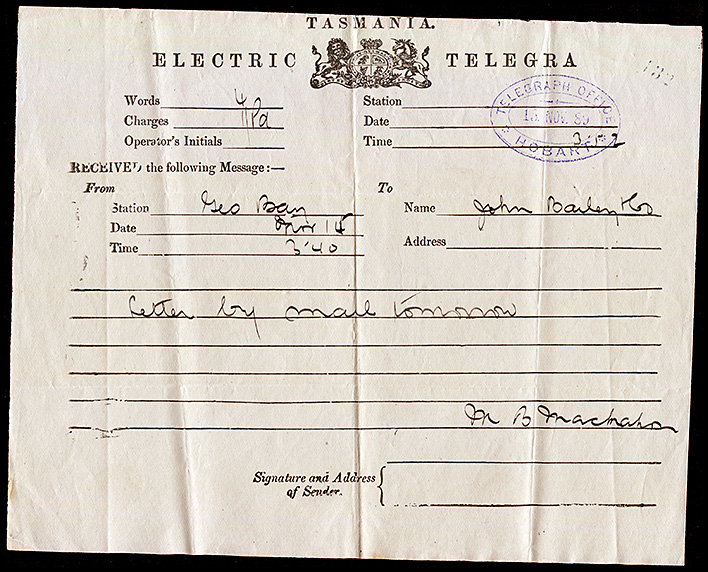 TASMANIA.
ELECTRIC TELEGRA
Words 4
Charges Pd
Operator's Initials
Station
Date
Time 3.52
TELEGRAPH OFFICE
15 NOV. 89
HOBART
RECEIVED the following Message:—
From
Station Geo Bay
Date Nov 15
Time 3.40
To
Name John Bailey & Co
Address
Letter by mail tomorrow
M B
Signature and Address
of Sender.